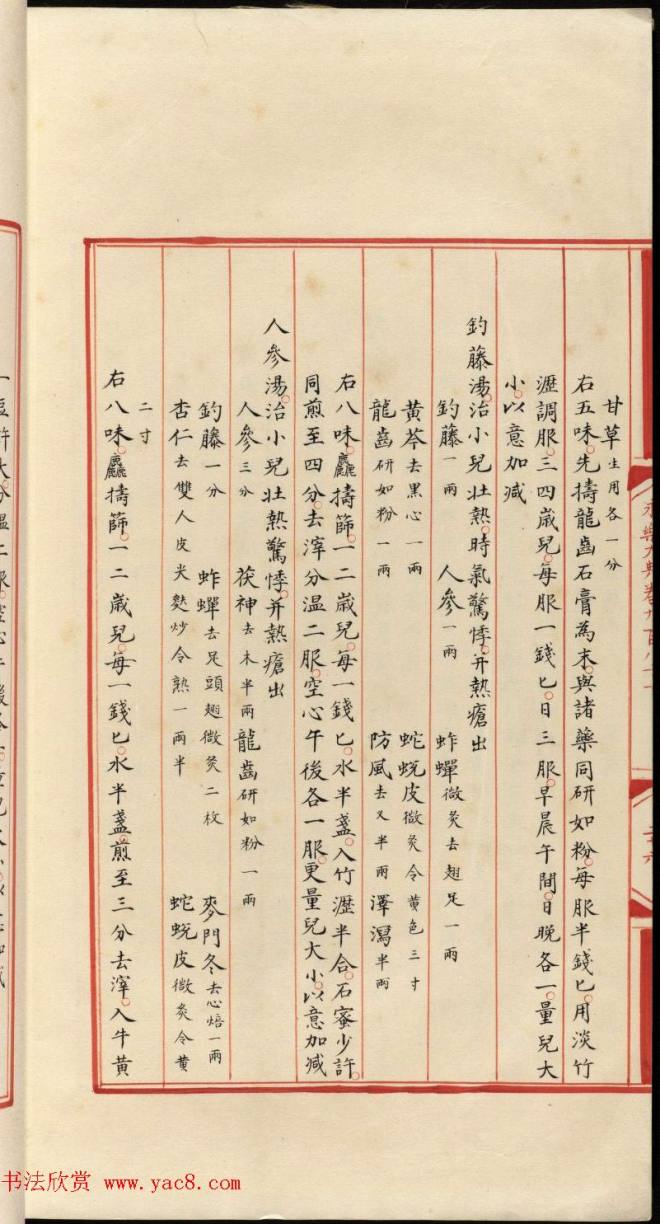 甘草生用各一分
右五味。先擣龍齒石膏為末。與諸藥同研如粉。每服半錢匕。用淡竹
瀝調服。三四歲兒。每服一錢匕。日三服。早晨午間日晚各一。量兒大
小。以意加減
釣藤湯。治小兒壯熱。時氣驚悸。并熱瘡出
釣藤一兩 人參一兩 蚱蟬微炙去翅足一兩
黃芩去黑心一兩 蛇蛻皮微炙令黃色三寸
龍齒研如粉一兩 防風去叉半兩 澤瀉半兩
右八味。麤擣篩。一二歲兒。每一錢匕。水半盞。入竹瀝半合。石蜜少許。
同煎至四分。去滓分溫二服。空心午後各一服。更量兒大小。以意加減
人參湯。治小兒壯熱驚悸。并熱瘡出
人參三分 茯神去木半兩 龍齒研如粉一兩
釣藤一分 蚱蟬去足頭翅微炙二枚 麥門冬去心焙一兩
杏仁去雙人皮尖麩炒令熟一兩半 蛇蛻皮微炙令黃
二寸
右八味。麤擣篩。一二歲兒。每一錢匕。水半盞。煎至三分去滓。入牛黃
书法欣赏 www.yac8.com